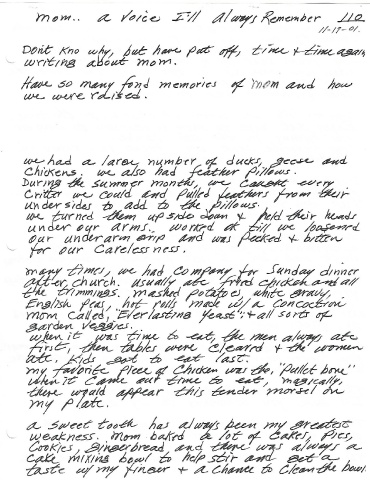 mom.. a voice I'll always Remember 110
11-17-01.
Dont kno why, but have put off, time + time again
writing about mom.
Have so many fond memories of mom and how
we were raised.
we had a large number of ducks, geese and
chickens. we also had feather pillows.
During the summer months, we caught every
critter we could and pulled feathers from their
undersides to add to the pillows.
we turned them upside down & held their heads
under our arms.. worked ok till we loosened
our underarm grip and was pecked & bitten
for our carelessness.
many times, we had company for Sunday dinner
after church. usually ate fried chicken and all
the trimmings. mashed potatoes, white gravy,
English peas, hot rolls made w/ a concoction
mom called, "Everlasting yeast" & all sorts of
garden veggies.
when it was time to eat, the men always ate
first, then tables were cleared & the women
ate. Kids got to eat last.
my favorite piece of chicken was the, "pullet bone"
when it came our time to eat, magically,
there would appear this tender morsel on
my plate.
a sweet tooth has always been my greatest
weakness. mom baked a lot of cakes, pies,
cookies, gingerbread, and there was always a
cake mixing bowl to help stir and get a
taste w/ my finger & a chance to clean the bowl.